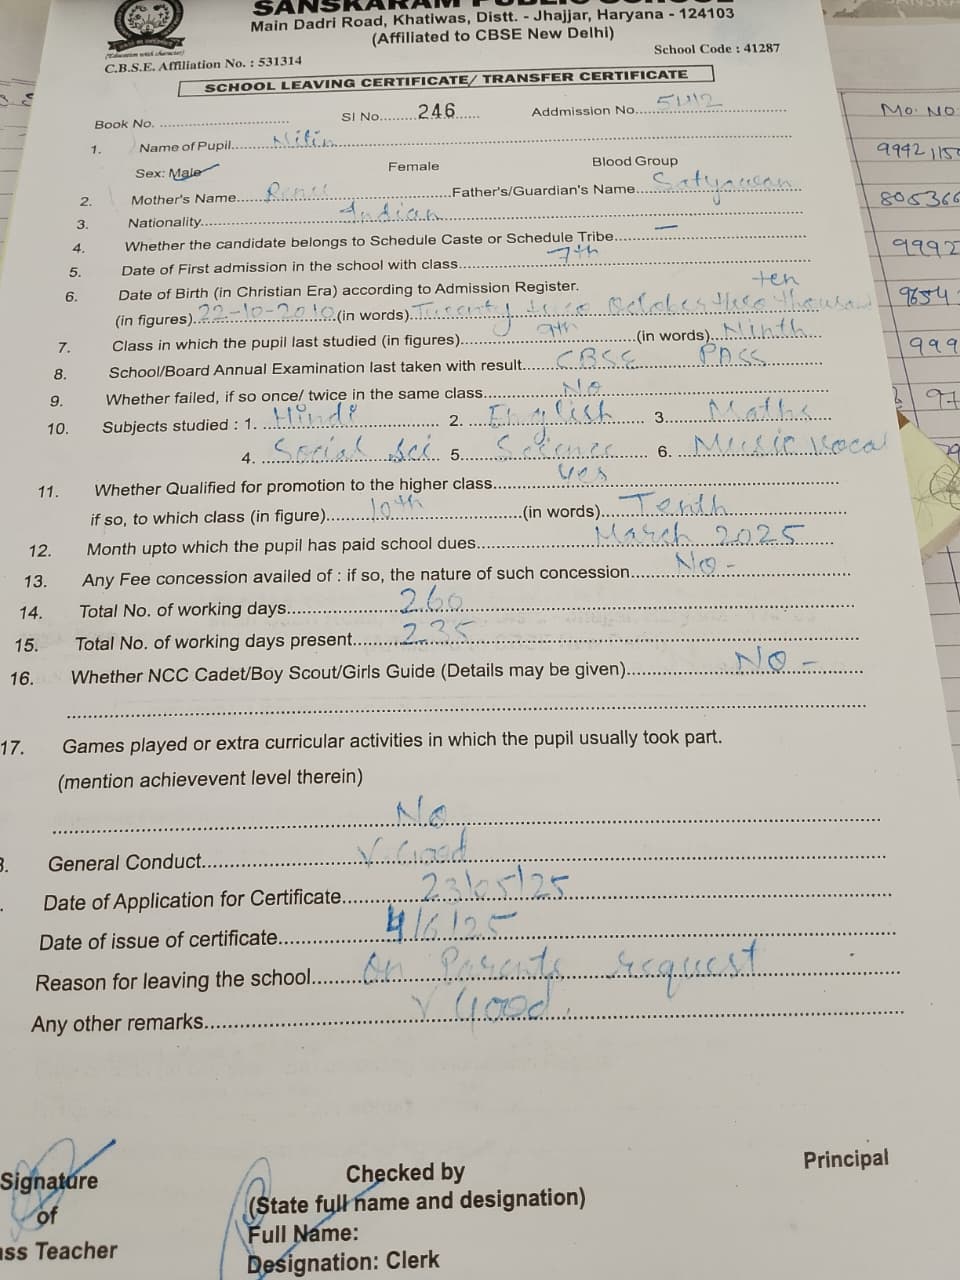 SANSKARAM PUBLIC SCHOOL
Main Dadri Road, Khatiwas, Distt. - Jhajjar, Haryana - 124103
(Affiliated to CBSE New Delhi)
(Education with character)
C.B.S.E. Affiliation No. : 531314
School Code : 41287
SCHOOL LEAVING CERTIFICATE/ TRANSFER CERTIFICATE
Book No. SI No. 246 Addmission No.
1. Name of Pupil Nitin
Sex: Male Female Blood Group
2. Mother's Name Father's/Guardian's Name Satyawan
3. Nationality Indian
4. Whether the candidate belongs to Schedule Caste or Schedule Tribe —
5. Date of First admission in the school with class 7th
6. Date of Birth (in Christian Era) according to Admission Register.
(in figures) 22-10-2010 (in words) Twenty two October two thousand ten
7. Class in which the pupil last studied (in figures) 9th (in words) Ninth
8. School/Board Annual Examination last taken with result CBSE PASS
9. Whether failed, if so once/ twice in the same class No
10. Subjects studied : 1. Hindi 2. English 3. Maths
4. Social Sci 5. Science 6. Music Vocal
11. Whether Qualified for promotion to the higher class Yes
if so, to which class (in figure) 10th (in words) Tenth
12. Month upto which the pupil has paid school dues March 2025
13. Any Fee concession availed of : if so, the nature of such concession No -
14. Total No. of working days 260
15. Total No. of working days present 235
16. Whether NCC Cadet/Boy Scout/Girls Guide (Details may be given) No -
17. Games played or extra curricular activities in which the pupil usually took part.
(mention achievevent level therein)
No
General Conduct V. Good
Date of Application for Certificate 23/05/25
Date of issue of certificate 4/6/25
Reason for leaving the school On Parents request
Any other remarks V Good
Signature
of
ass Teacher
Checked by
(State full name and designation)
Full Name:
Designation: Clerk
Principal
Mo. No